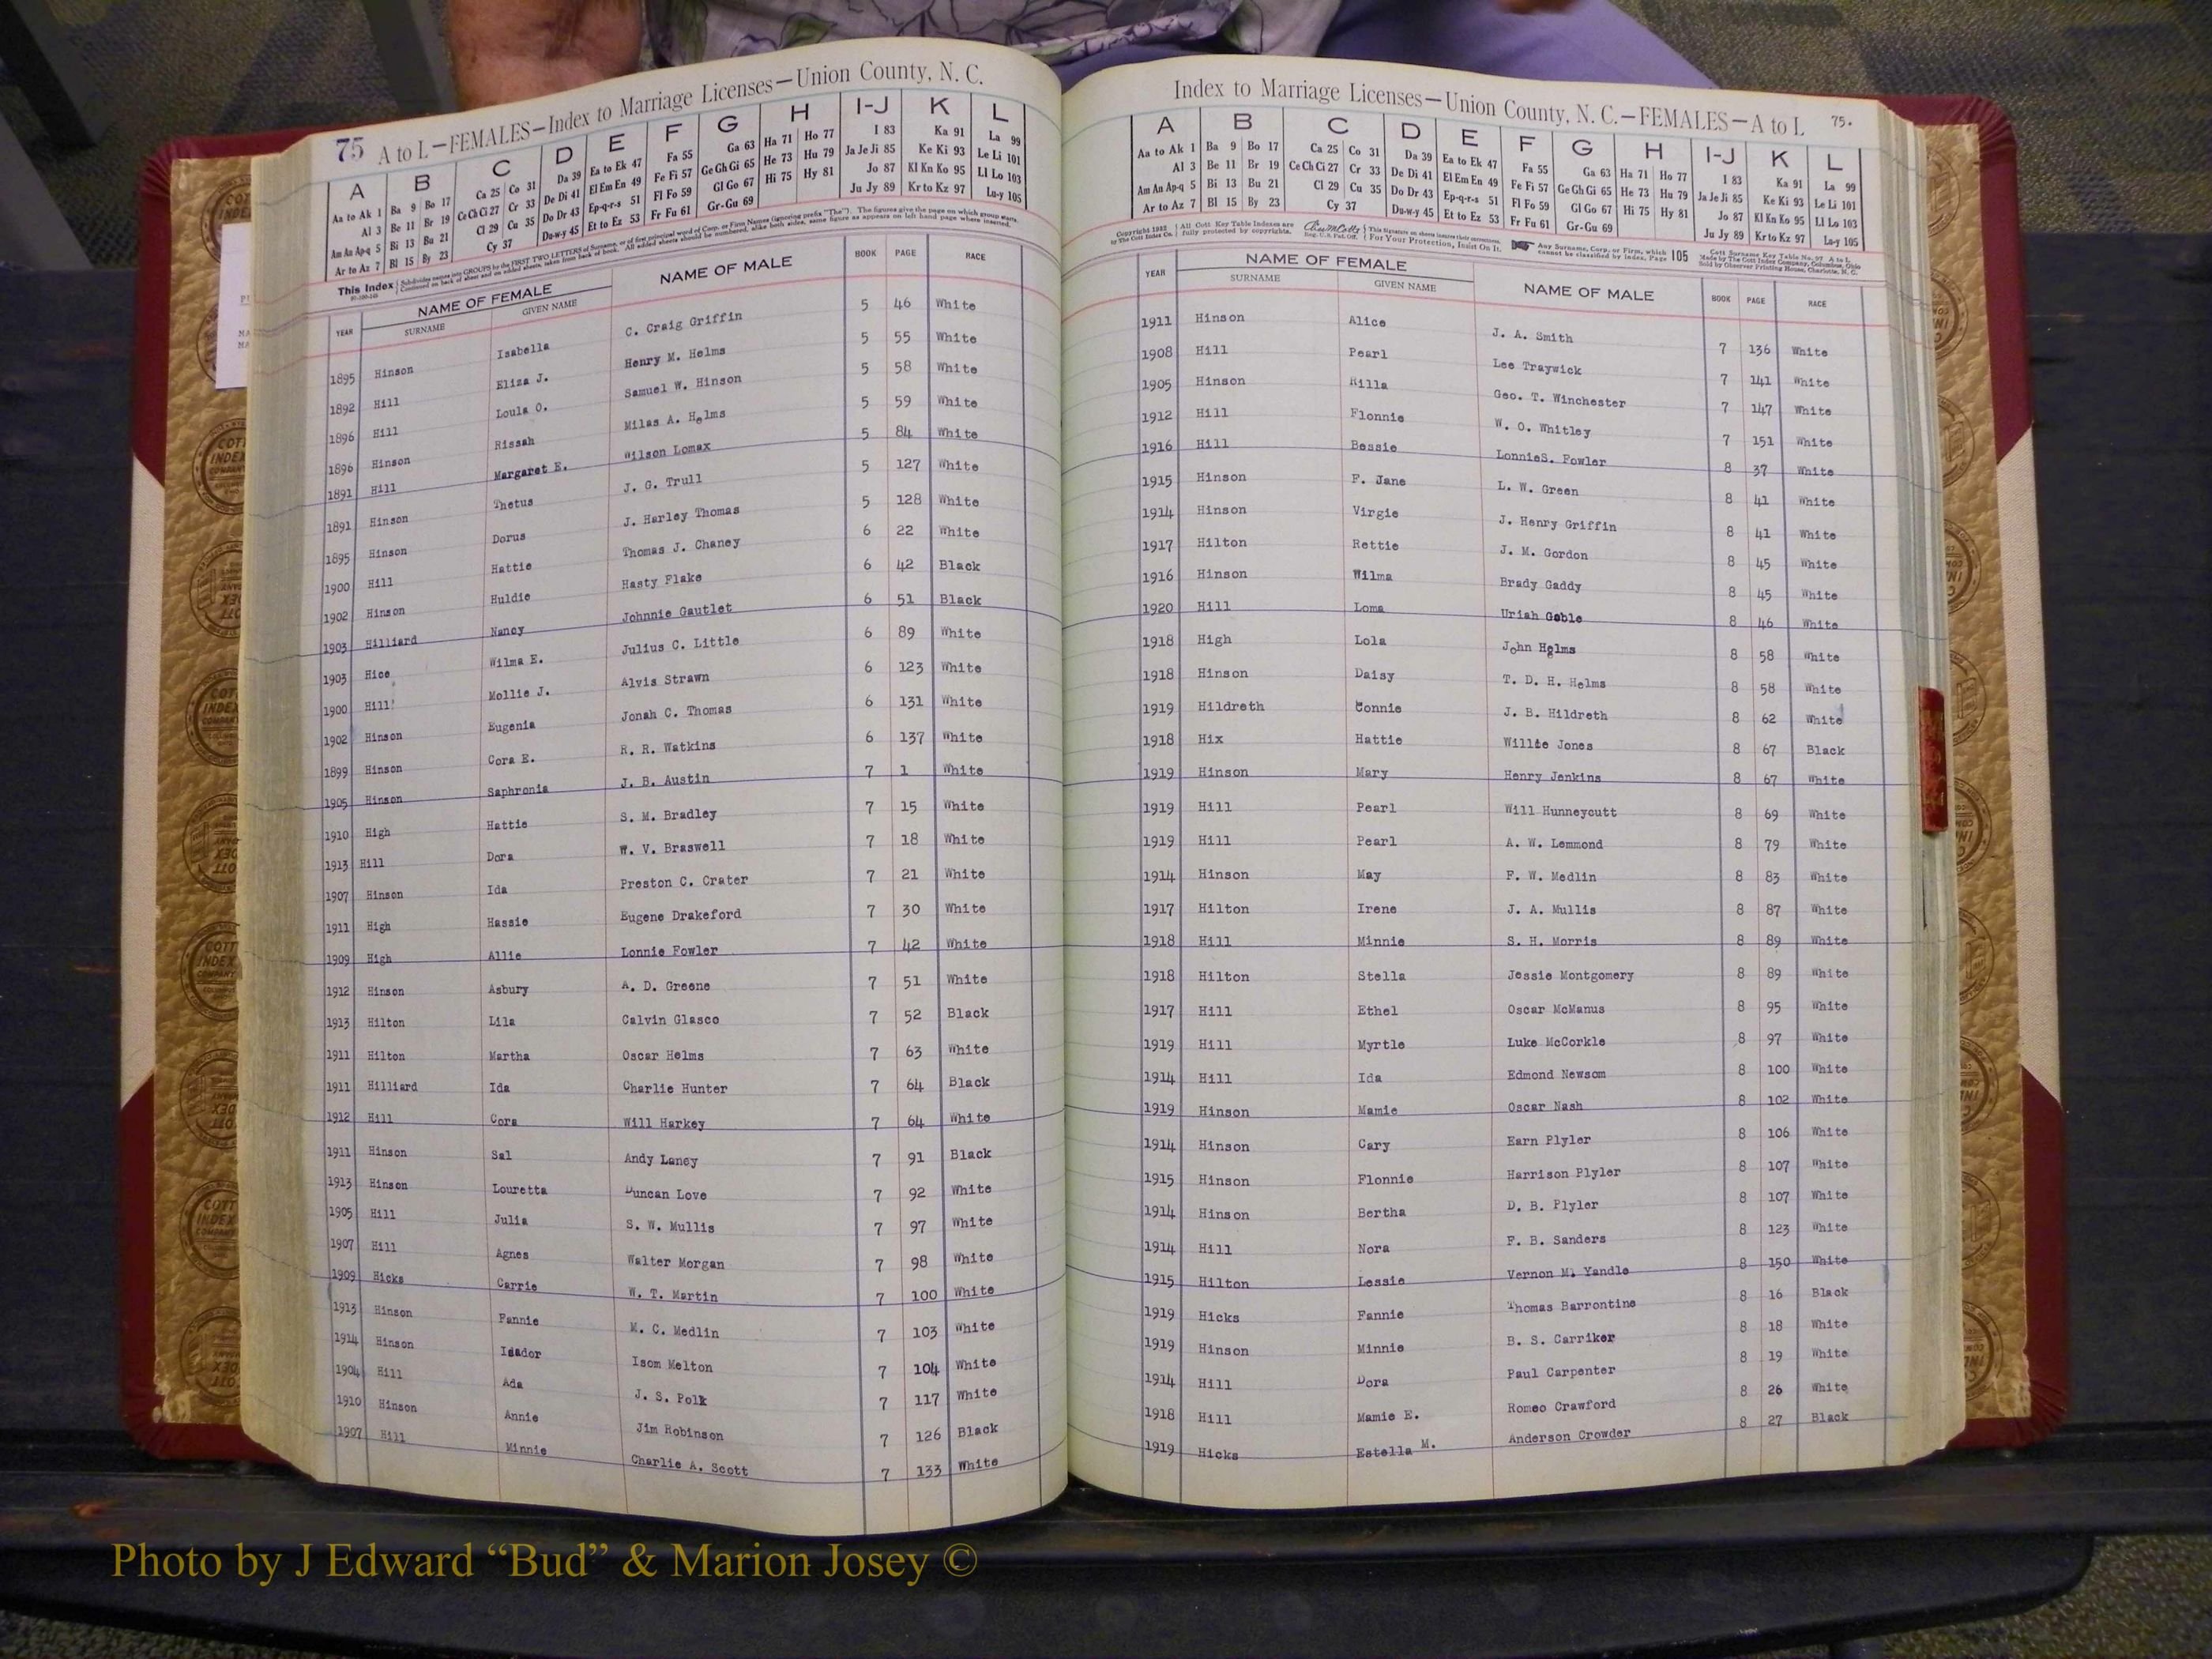 75 A to L—FEMALES—Index to Marriage Licenses—Union County, N. C.
A B C D E F G H I-J K L
Aa to Ak 1 Ba 9 Bo 17 Ca 25 Co 31 Da 39 Ea to Ek 47 Fa 55 Ga 63 Ha 71 Ho 77 I 83 Ka 91 La 99
Al 3 Be 11 Br 19 Ce Ch Ci 27 Cr 33 De Di 41 El Em En 49 Fe Fi 57 Ge Gh Gi 65 He 73 Hu 79 Ja Je Ji 85 Ke Ki 93 Le Li 101
Am An Ap-q 5 Bi 13 Bu 21 Cl 29 Cu 35 Do Dr 43 Ep-q-r-s 51 Fl Fo 59 Gl Go 67 Hi 75 Hy 81 Jo 87 Kl Kn Ko 95 Ll Lo 103
Ar to Az 7 Bl 15 By 23 Cy 37 Du-w-y 45 Et to Ez 53 Fr Fu 61 Gr-Gu 69 Ju Jy 89 Kr to Kz 97 Lu-y 105
This Index Subdivides names into GROUPS by the FIRST TWO LETTERS of Surname, or of first principal word of Corp. or Firm Names (ignoring prefix "The"). The figures give the page on which group starts.
Continued on back of sheet and on added sheets, taken from back of book. All added sheets should be numbered, alike both sides, same figure as appears on left hand page where inserted.
YEAR NAME OF FEMALE SURNAME GIVEN NAME NAME OF MALE BOOK PAGE RACE
1895 Hinson Isabella C. Craig Griffin 5 46 White
1892 Hill Eliza J. Henry M. Helms 5 55 White
1896 Hill Loula O. Samuel W. Hinson 5 58 White
1896 Hinson Rissah Milas A. Helms 5 59 White
1891 Hill Margaret E. Wilson Lomax 5 84 White
1891 Hinson Thetus J. G. Trull 5 127 White
1895 Hinson Dorus J. Harley Thomas 5 128 White
1900 Hill Hattie Thomas J. Chaney 6 22 White
1902 Hinson Huldie Hasty Flake 6 42 Black
1903 Hilliard Nancy Johnnie Gautlet 6 51 Black
1903 Hice Wilma E. Julius C. Little 6 89 White
1900 Hill Mollie J. Alvis Strawn 6 123 White
1902 Hinson Eugenia Jonah C. Thomas 6 131 White
1899 Hinson Cora E. R. R. Watkins 6 137 White
1905 Hinson Saphronia J. B. Austin 7 1 White
1910 High Hattie S. M. Bradley 7 15 White
1913 Hill Dora W. V. Braswell 7 18 White
1907 Hinson Ida Preston C. Crater 7 21 White
1911 High Hassie Eugene Drakeford 7 30 White
1909 High Allie Lonnie Fowler 7 42 White
1912 Hinson Asbury A. D. Greene 7 51 White
1913 Hilton Lila Calvin Glasco 7 52 Black
1911 Hilton Martha Oscar Helms 7 63 White
1911 Hilliard Ida Charlie Hunter 7 64 Black
1912 Hill Cora Will Harkey 7 64 White
1911 Hinson Sal Andy Laney 7 91 Black
1913 Hinson Louretta Duncan Love 7 92 White
1905 Hill Julia S. W. Mullis 7 97 White
1907 Hill Agnes Walter Morgan 7 98 White
1909 Hicks Carrie W. T. Martin 7 100 White
1913 Hinson Fannie M. C. Medlin 7 103 White
1914 Hinson Isador Isom Melton 7 104 White
1904 Hill Ada J. S. Polk 7 117 White
1910 Hinson Annie Jim Robinson 7 126 Black
1907 Hill Minnie Charlie A. Scott 7 133 White
Index to Marriage Licenses—Union County, N. C.—FEMALES—A to L 75.
A B C D E F G H I-J K L
Aa to Ak 1 Ba 9 Bo 17 Ca 25 Co 31 Da 39 Ea to Ek 47 Fa 55 Ga 63 Ha 71 Ho 77 I 83 Ka 91 La 99
Al 3 Be 11 Br 19 Ce Ch Ci 27 Cr 33 De Di 41 El Em En 49 Fe Fi 57 Ge Gh Gi 65 He 73 Hu 79 Ja Je Ji 85 Ke Ki 93 Le Li 101
Am An Ap-q 5 Bi 13 Bu 21 Cl 29 Cu 35 Do Dr 43 Ep-q-r-s 51 Fl Fo 59 Gl Go 67 Hi 75 Hy 81 Jo 87 Kl Kn Ko 95 Ll Lo 103
Ar to Az 7 Bl 15 By 23 Cy 37 Du-w-y 45 Et to Ez 53 Fr Fu 61 Gr-Gu 69 Ju Jy 89 Kr to Kz 97 Lu-y 105
Copyright 1932 by The Cott Index Co. All Cott Key Table Indexes are fully protected by copyrights. Reg. U.S. Pat. Off. This Signature on sheets insures their correctness. For Your Protection, Insist On It. Any Surname, Corp. or Firm, which cannot be classified by Index, Page 105 Cott Surname Key Table No. 97 A to L Made by The Cott Index Company, Columbus, Ohio Sold by Observer Printing House, Charlotte, N. C.
YEAR NAME OF FEMALE SURNAME GIVEN NAME NAME OF MALE BOOK PAGE RACE
1911 Hinson Alice J. A. Smith 7 136 White
1908 Hill Pearl Lee Traywick 7 141 White
1905 Hinson Rilla Geo. T. Winchester 7 147 White
1912 Hill Flonnie W. O. Whitley 7 151 White
1916 Hill Bessie LonnieS. Fowler 8 37 White
1915 Hinson F. Jane L. W. Green 8 41 White
1914 Hinson Virgie J. Henry Griffin 8 41 White
1917 Hilton Rettie J. M. Gordon 8 45 White
1916 Hinson Wilma Brady Gaddy 8 45 White
1920 Hill Loma Uriah Goble 8 46 White
1918 High Lola John Helms 8 58 White
1918 Hinson Daisy T. D. H. Helms 8 58 White
1919 Hildreth Connie J. B. Hildreth 8 62 White
1918 Hix Hattie Willie Jones 8 67 Black
1919 Hinson Mary Henry Jenkins 8 67 White
1919 Hill Pearl Will Hunneycutt 8 69 White
1919 Hill Pearl A. W. Lemmond 8 79 White
1914 Hinson May F. W. Medlin 8 83 White
1917 Hilton Irene J. A. Mullis 8 87 White
1918 Hill Minnie S. H. Morris 8 89 White
1918 Hilton Stella Jessie Montgomery 8 89 White
1917 Hill Ethel Oscar McManus 8 95 White
1919 Hill Myrtle Luke McCorkle 8 97 White
1914 Hill Ida Edmond Newsom 8 100 White
1919 Hinson Mamie Oscar Nash 8 102 White
1914 Hinson Cary Earn Plyler 8 106 White
1915 Hinson Flonnie Harrison Plyler 8 107 White
1914 Hinson Bertha D. B. Plyler 8 107 White
1914 Hill Nora F. B. Sanders 8 123 White
1915 Hilton Lessie Vernon M. Yandle 8 150 White
1919 Hicks Fannie Thomas Barrontine 8 16 Black
1919 Hinson Minnie B. S. Carriker 8 18 White
1914 Hill Dora Paul Carpenter 8 19 White
1918 Hill Mamie E. Romeo Crawford 8 26 White
1919 Hicks Estella M. Anderson Crowder 8 27 Black
Photo by J Edward “Bud” & Marion Josey ©